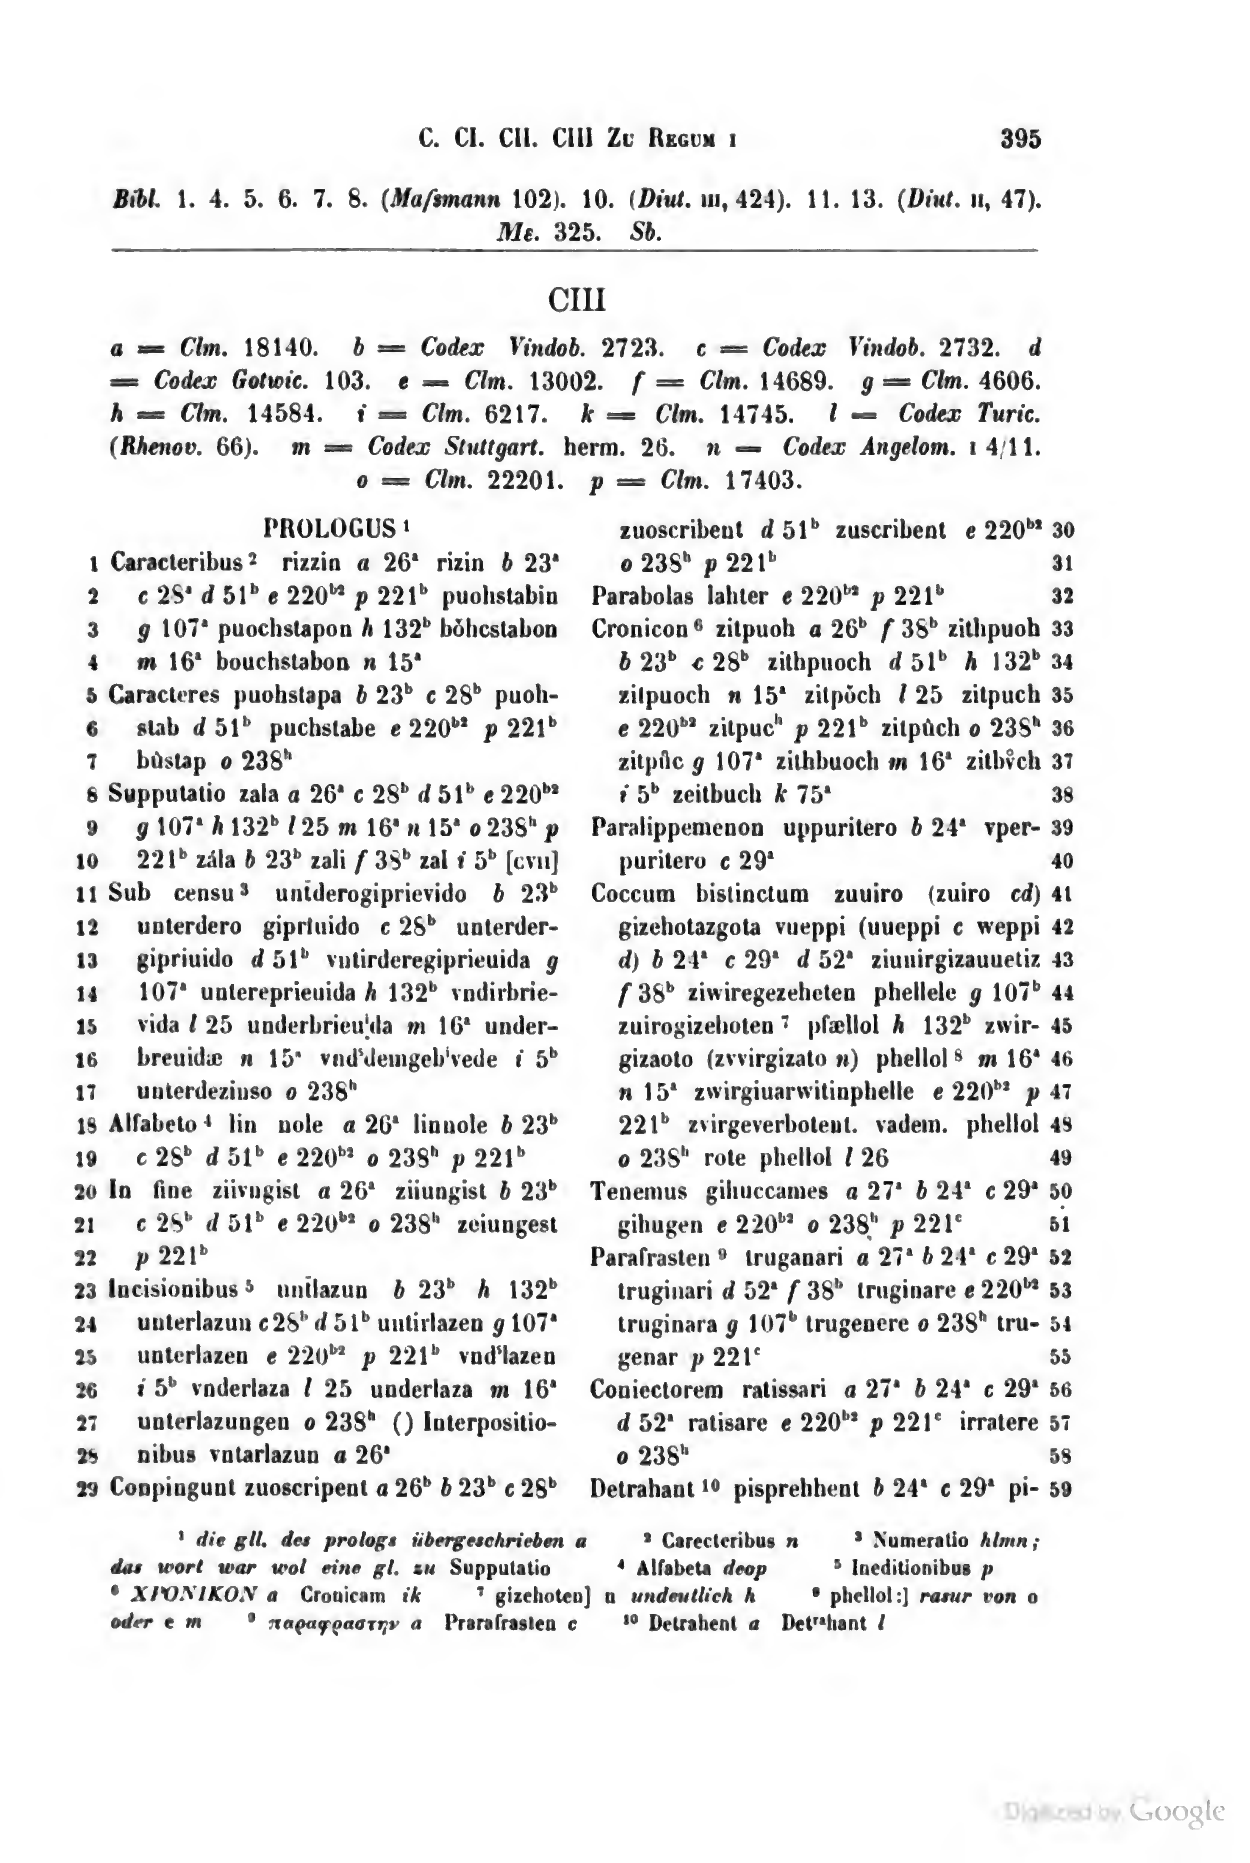 C. CI. CII. CIII Zu Regum I 395
Bibl. 1. 4. 5. 6. 7. 8. (Maſsmann 102). 10. (Diut. III, 424). 11. 13. (Diut. II, 47).
Me. 325. Sb.
CIII
a = Clm. 18140. b = Codex Vindob. 2723. c = Codex Vindob. 2732. d
= Codex Gotwic. 103. e = Clm. 13002. f = Clm. 14689. g = Clm. 4606.
h = Clm. 14584. i = Clm. 6217. k = Clm. 14745. l = Codex Turic.
(Rhenov. 66). m = Codex Stuttgart. herm. 26. n = Codex Angelom. I 4/11.
o = Clm. 22201. p = Clm. 17403.
PROLOGUS ¹
1 Caracteribus ² rizzin a 26ᵃ rizin b 23ᵃ
2 c 28ᵃ d 51ᵇ e 220ᵇ² p 221ᵇ puohstabin
3 g 107ᵃ puochstapon h 132ᵇ bǒhcstabon
4 m 16ᵃ bouchstabon n 15ᵃ
5 Caracteres puohstapa b 23ᵇ c 28ᵇ puoh-
6 stab d 51ᵇ puchstabe e 220ᵇ² p 221ᵇ
7 bůstap o 238ʰ
8 Supputatio zala a 26ᵃ c 28ᵇ d 51ᵇ e 220ᵇ²
9 g 107ᵃ h 132ᵇ l 25 m 16ᵃ n 15ᵃ o 238ʰ p
10 221ᵇ zála b 23ᵇ zali f 38ᵇ zal i 5ᵇ [CVII]
11 Sub censu ³ unīderogiprievido b 23ᵇ
12 unterdero gipriuido c 28ᵇ unterder-
13 gipriuido d 51ᵇ vntirderegiprieuida g
14 107ᵃ untereprieuida h 132ᵇ vndirbrie-
15 vida l 25 underbrieuⁱda m 16ᵃ under-
16 breuidæ n 15ᵃ vndˢdemgebⁱvede i 5ᵇ
17 unterdezinso o 238ʰ
18 Alfabeto ⁴ lin nole a 26ᵃ linnole b 23ᵇ
19 c 28ᵇ d 51ᵇ e 220ᵇ² o 238ʰ p 221ᵇ
20 In fine ziivngist a 26ᵃ ziiungist b 23ᵇ
21 c 28ᵇ d 51ᵇ e 220ᵇ² o 238ʰ zeiungest
22 p 221ᵇ
23 Incisionibus ⁵ unt̄lazun b 23ᵇ h 132ᵇ
24 unterlazun c 28ᵇ d 51ᵇ untirlazen g 107ᵃ
25 unterlazen e 220ᵇ² p 221ᵇ vndˢlazen
26 i 5ᵇ vnderlaza l 25 underlaza m 16ᵃ
27 unterlazungen o 238ʰ () Interpositio-
28 nibus vntarlazun a 26ᵃ
29 Conpingunt zuoscripent a 26ᵇ b 23ᵇ c 28ᵇ
zuoscribent d 51ᵇ zuscribent e 220ᵇ² 30
o 238ʰ p 221ᵇ 31
Parabolas lahter e 220ᵇ² p 221ᵇ 32
Cronicon ⁶ zitpuoh a 26ᵇ f 38ᵇ zithpuoh 33
b 23ᵇ c 28ᵇ zithpuoch d 51ᵇ h 132ᵇ 34
zitpuoch n 15ᵃ zitpǒch l 25 zitpuch 35
e 220ᵇ² zitpucʰ p 221ᵇ zitpůch o 238ʰ 36
zitpůc g 107ᵃ zithbuoch m 16ᵃ zitbv̊ch 37
i 5ᵇ zeitbuch k 75ᵃ 38
Paralippemenon uppuritero b 24ᵃ vper- 39
puritero c 29ᵃ 40
Coccum bistinctum zuuiro (zuiro cd) 41
gizehotazgota vueppi (uueppi c weppi 42
d) b 24ᵃ c 29ᵃ d 52ᵃ ziuuirgizauuetiz 43
f 38ᵇ ziwiregezeheten phellele g 107ᵇ 44
zuirogizehoten ⁷ pfællol h 132ᵇ zwir- 45
gizaoto (zvvirgizato n) phellol ⁸ m 16ᵃ 46
n 15ᵃ zwirgiuarwitinphelle e 220ᵇ² p 47
221ᵇ zvirgeverbotent. vadem. phellol 48
o 238ʰ rote phellol l 26 49
Tenemus gihuccames a 27ᵃ b 24ᵃ c 29ᵃ 50
gihugen e 220ᵇ² o 238ʰ p 221ᶜ 51
Parafrasten ⁹ truganari a 27ᵃ b 24ᵃ c 29ᵃ 52
truginari d 52ᵃ f 38ᵇ truginare e 220ᵇ² 53
truginara g 107ᵇ trugenere o 238ʰ tru- 54
genar p 221ᶜ 55
Coniectorem ratissari a 27ᵃ b 24ᵃ c 29ᵃ 56
d 52ᵃ ratisare e 220ᵇ² p 221ᶜ irratere 57
o 238ʰ 58
Detrahant ¹⁰ pisprehhent b 24ᵃ c 29ᵃ pi- 59
¹ die gll. des prologs übergeschrieben a ² Carecteribus n ³ Numeratio hlmn;
das wort war wol eine gl. zu Supputatio ⁴ Alfabeta deop ⁵ Ineditionibus p
⁶ ΧΡΟΝΙΚΟΝ a Cronicam ik ⁷ gizehoten] n undeutlich h ⁸ phellol:] rasur von o
oder e m ⁹ παραφραστην a Prarafrasten c ¹⁰ Detrahent a Detʳᵃhant l
Digitized by Google